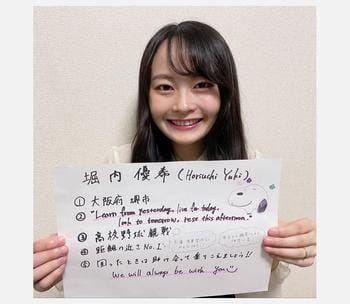 堀内 優希 (Horiuchi Yuki)
① 大阪府 堺市
② "Learn from yesterday, live for today,
look to tomorrow, rest this afternoon."
③ 高校野球観戦
④ 距離の近さ No.1
⑤ 困ったときは助け合って乗りこえましょう!!
We will always be with you